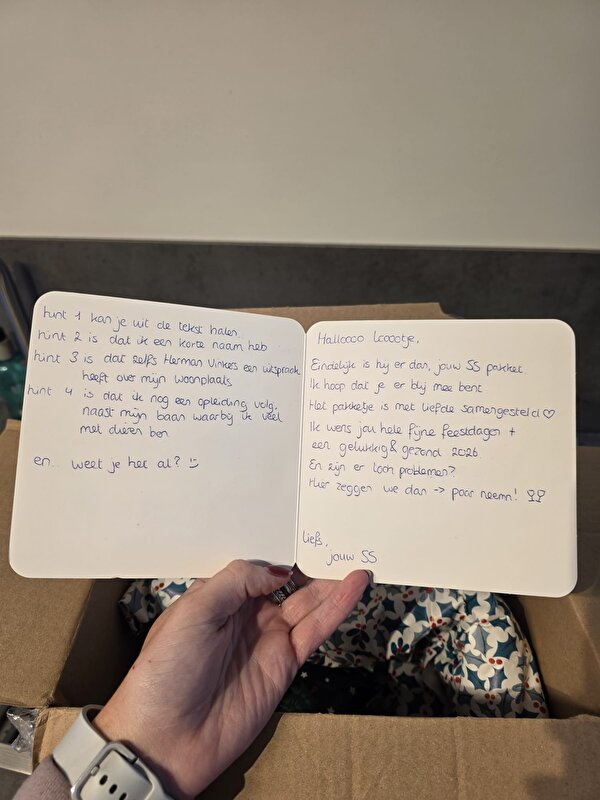 hint 1 kan je uit de tekst halen..
hint 2 is dat ik een korte naam heb
hint 3 is dat zelfs Herman Vinkers een uitspraak
heeft over mijn woonplaats
hint 4 is dat ik nog een opleiding volg,
naast mijn baan waarbij ik veel
met dieren ben
en.. weet je het al? :)
Hallocco Lccootje,
Eindelijk is hij er dan, jouw SS pakket
Ik hoop dat je er blij mee bent
Het pakketje is met liefde samengesteld ♡
Ik wens jou hele fijne feestdagen +
een gelukkig & gezond 2026
En zijn er toch problemen?
Hier zeggen we dan -> paar neemn!
liefs,
jouw SS